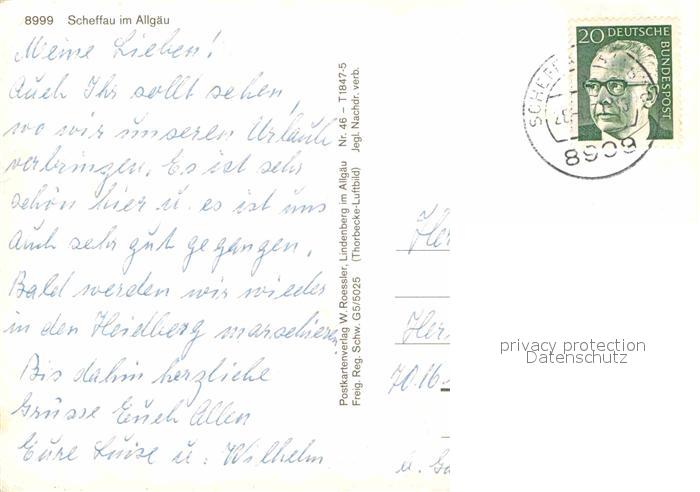 8999 Scheffau im Allgäu
Meine Lieben!
Auch Ihr sollt sehen,
wo wir unseren Urlaub
verbringen. Es ist sehr
schön hier u. es ist uns
auch sehr gut gegangen.
Bald werden wir wieder
in den Heidberg marschieren.
Bis dahin herzliche
Grüsse Euch Allen
Eure Luise u. Wilhelm
Postkartenverlag W. Roessler, Lindenberg im Allgäu Nr. 46 – T 1847-5
Freig. Reg. Schw. G5/5025 (Thorbecke-Luftbild) Jegl. Nachdr. verb.
20 DEUTSCHE
BUNDESPOST
privacy protection
Datenschutz